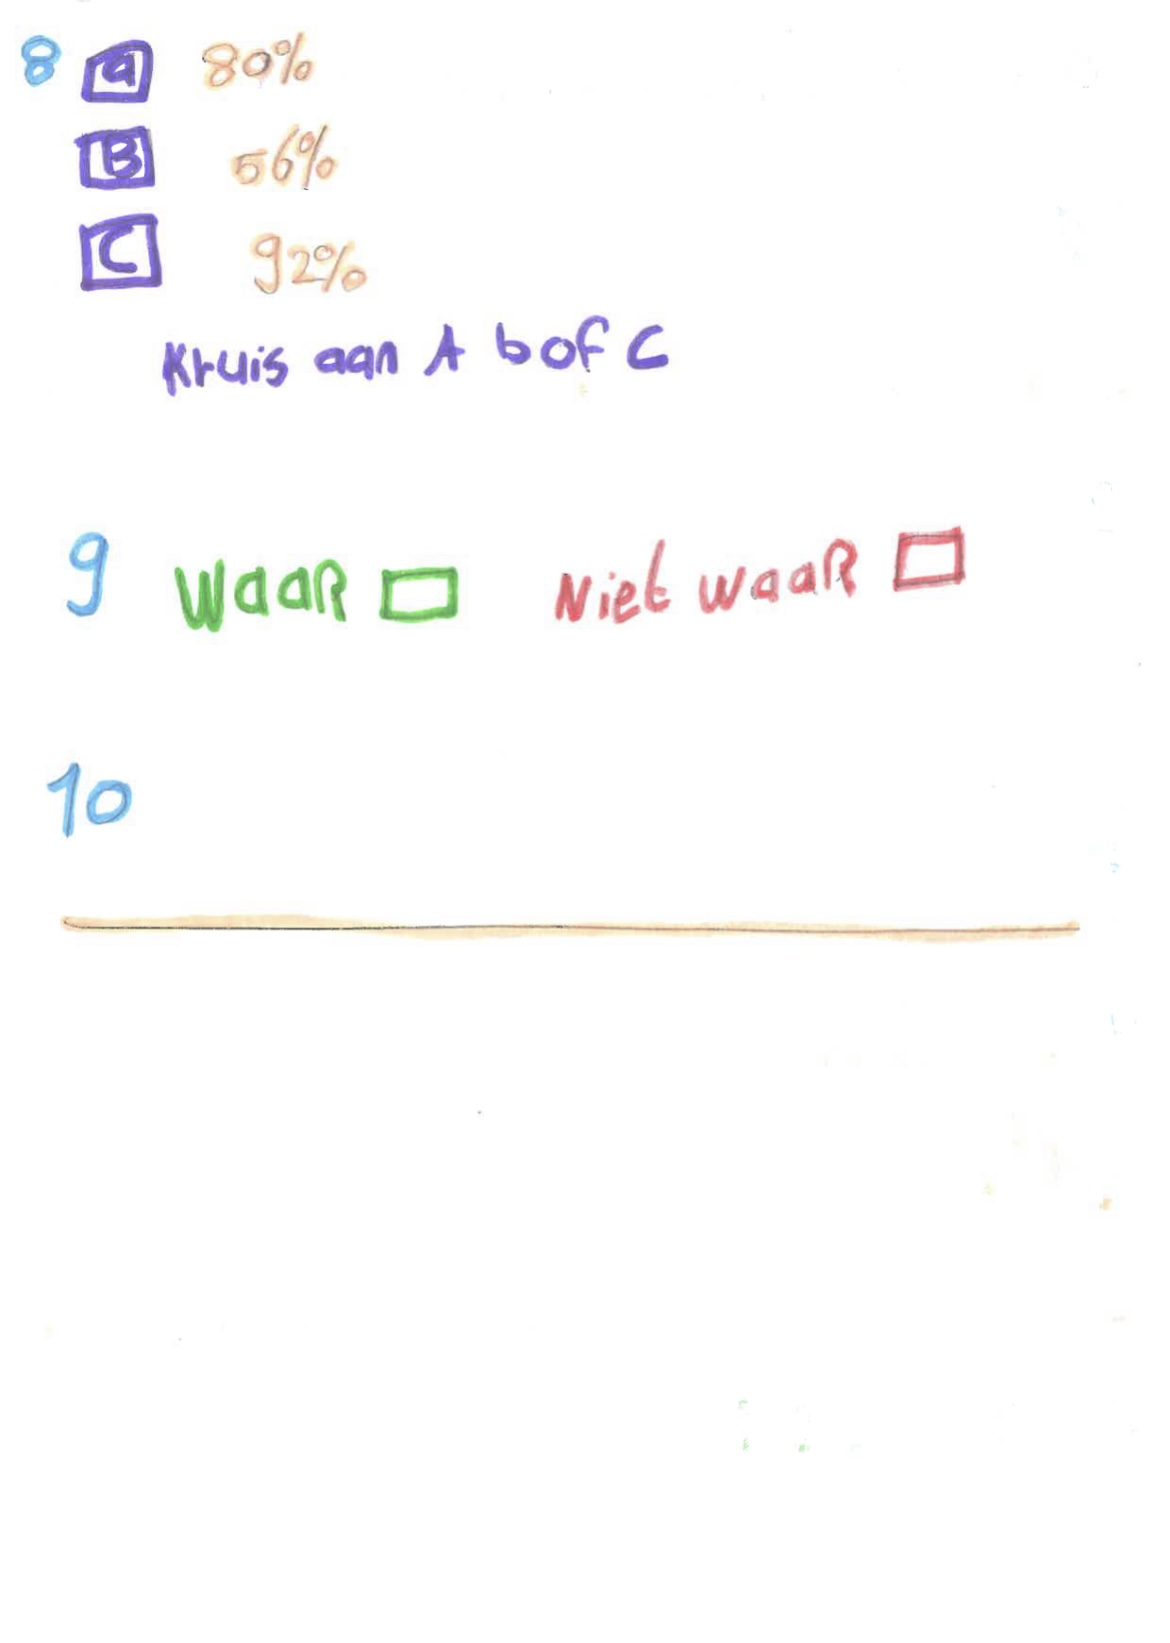 8 a 80%
B 56%
C 92%
Kruis aan A b of C
9 WaaR Niet waaR
10